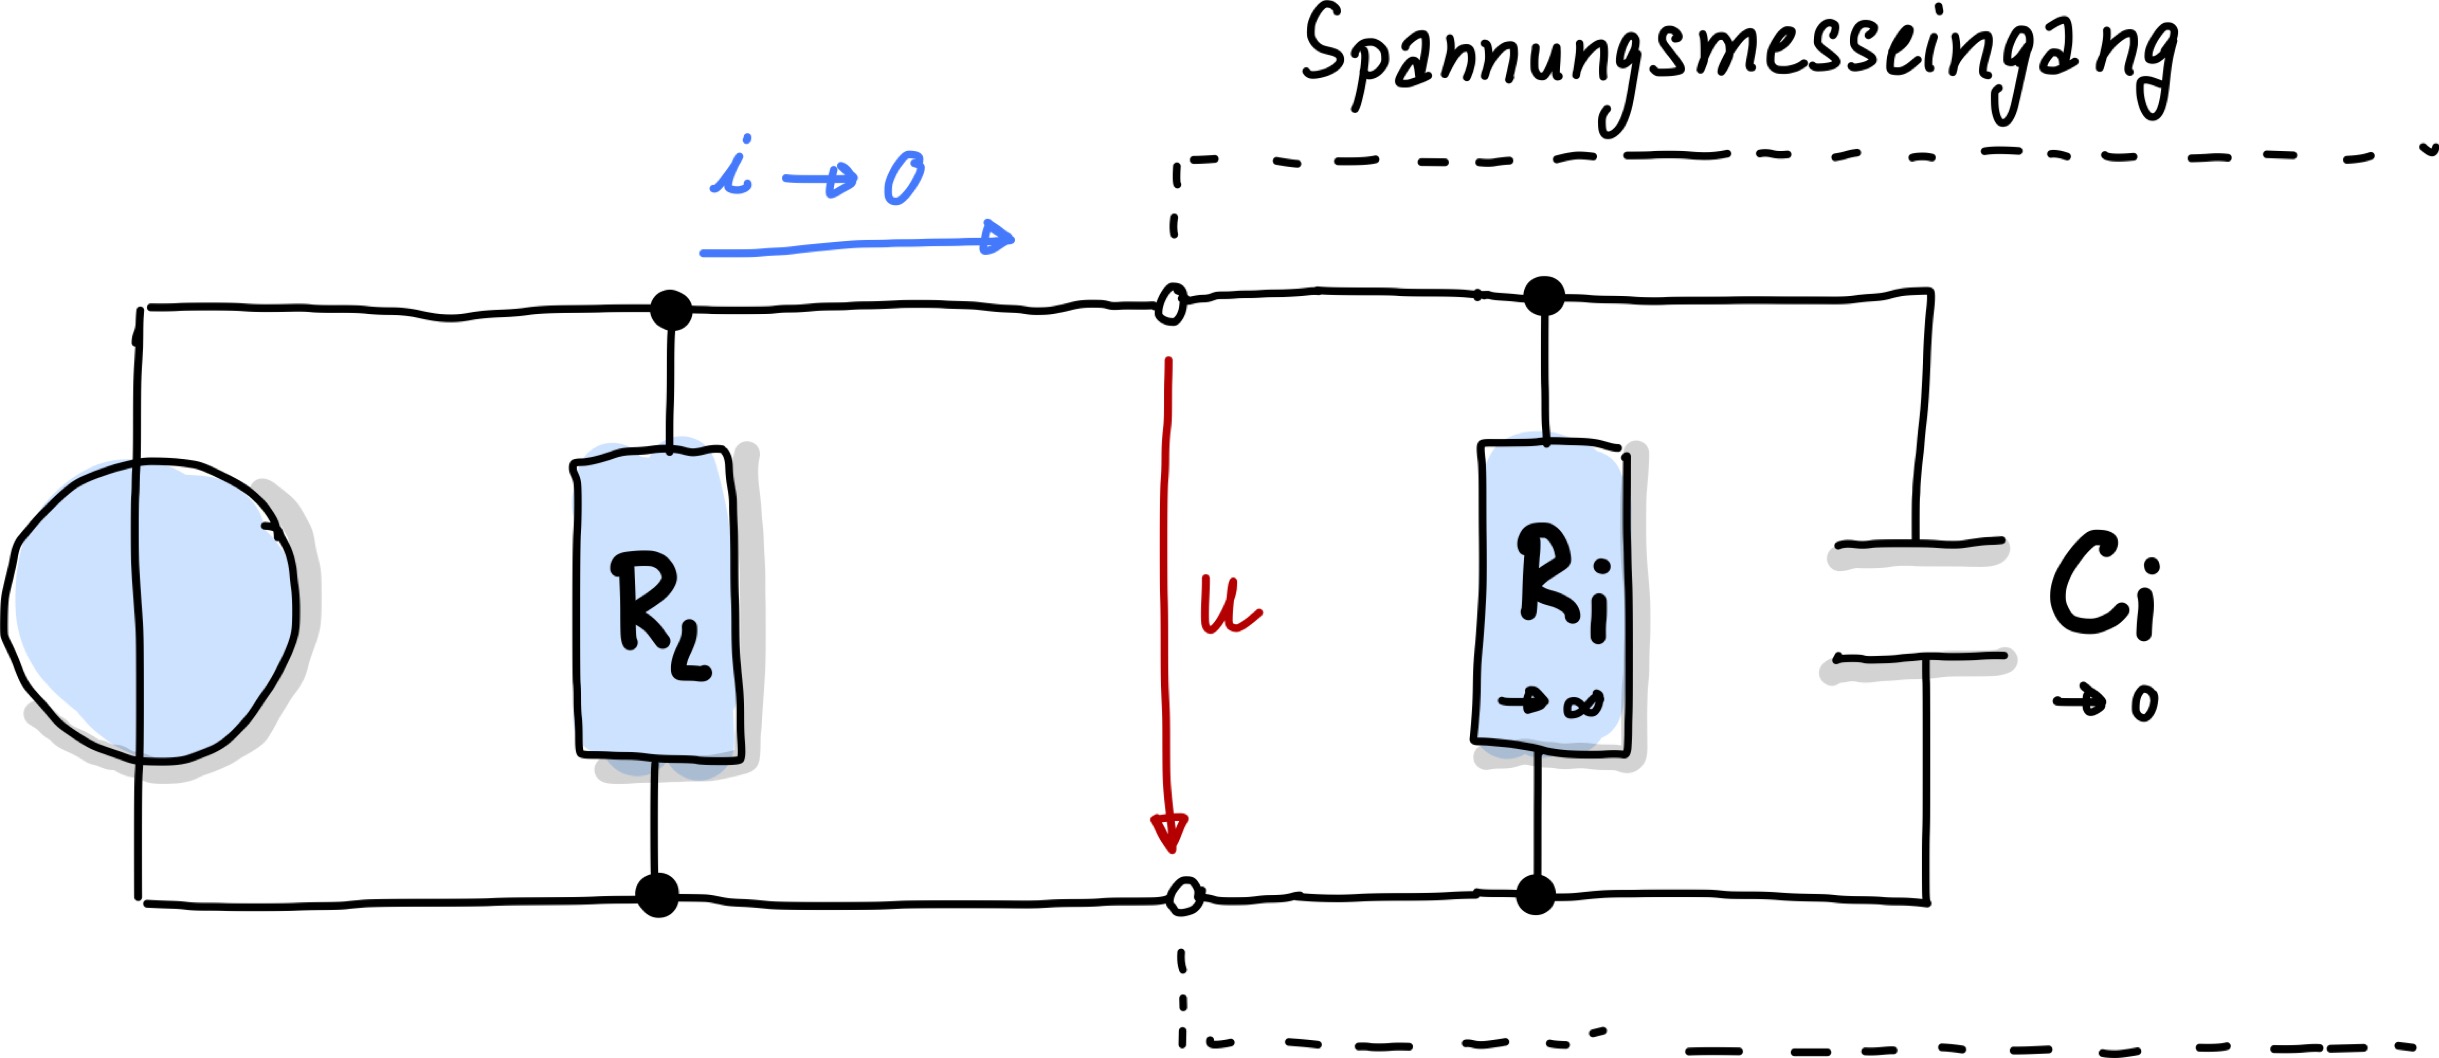 Spannungsmesseingang
i → 0
R_L
u
R_i
→ ∞
C_i
→ 0